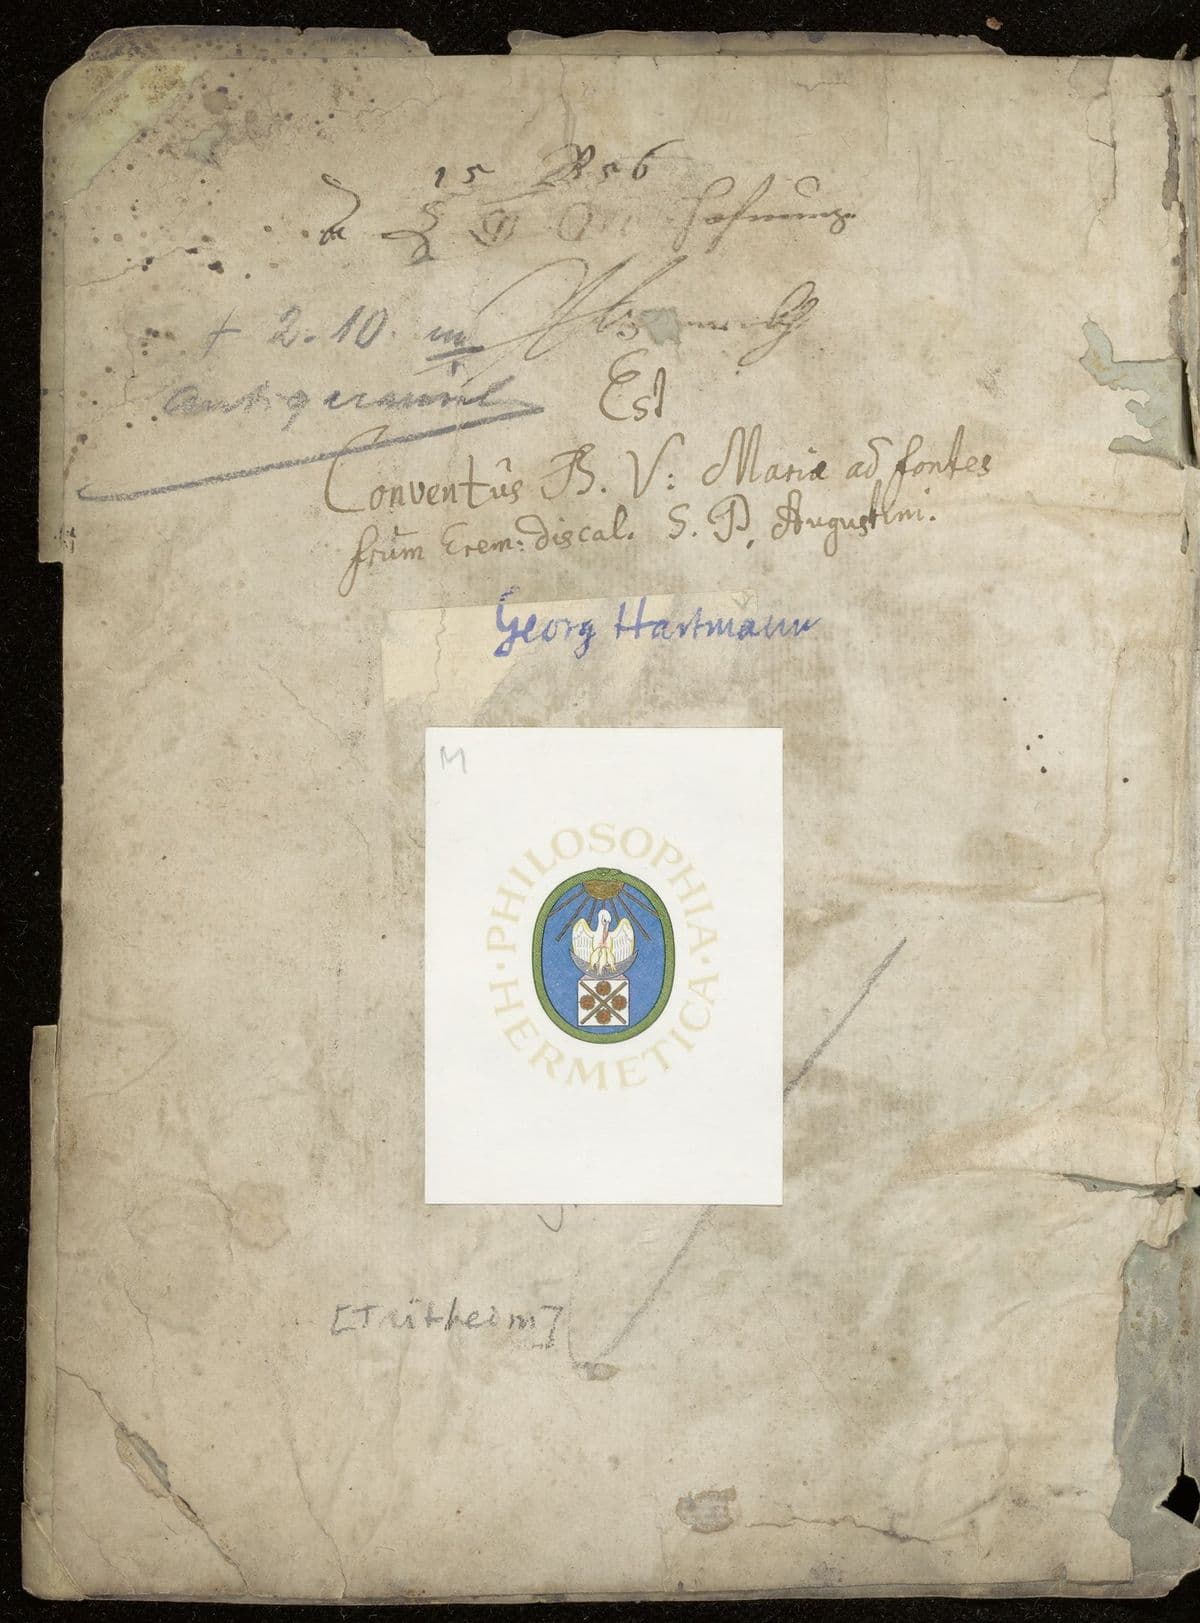 15 56
Hofnung
+ 2.10. m
Est
Conventûs B. V: Mariæ ad fontes
frum Erem: discal. S. P. Augustini.
Georg Hartmann
M
· PHILOSOPHIA · HERMETICA
[Tritheim]